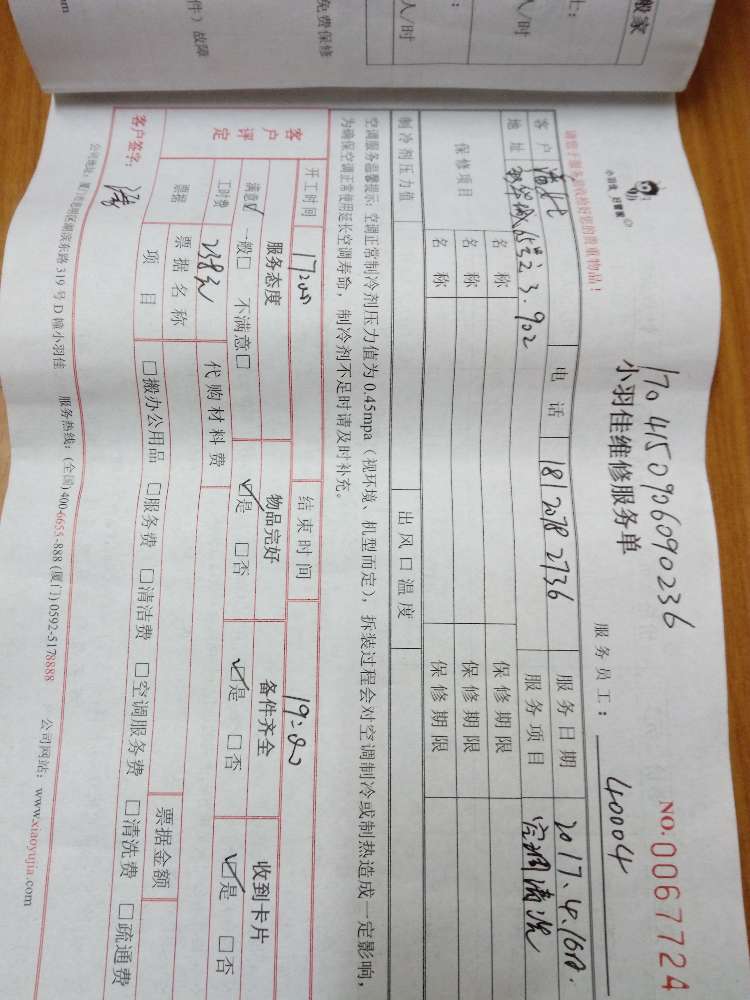 搬家
士:
人/时
人/时
免费保修
件）故障
om
小羽佳 好管家
1704150906090236
NO.0067724
小羽佳维修服务单
服务员工: 40004
请您于服务前收拾好您的贵重物品!
客户
电话 18120782736
服务日期 2017.4.16日.
地址
3.902
服务项目 空调清洗
保修项目
名称
保修期限
名称
保修期限
名称
保修期限
制冷剂压力值
出风口温度
空调服务温馨提示: 空调正常制冷剂压力值为0.45mpa（视环境、机型而定），拆装过程会对空调制冷或制热造成一定影响，
为确保空调正常使用延长空调寿命，制冷剂不足时请及时补充。
开工时间 17:00
结束时间 19:00
客户评定
服务态度
物品完好
备件齐全
收到卡片
满意☑ 一般□ 不满意□
☑是 □否
☑是 □否
☑是 □否
工时费 238元
代购材料费
票据
票据名称
票据金额
项目
□搬办公用品 □服务费 □清洁费 □空调服务费 □清洗费 □疏通费
客户签字:
公司地址: 厦门市思明区湖滨东路319号D幢小羽佳
服务热线: (全国)400-6655-888 (厦门)0592-5178888
公司网站: www.xiaoyujia.com